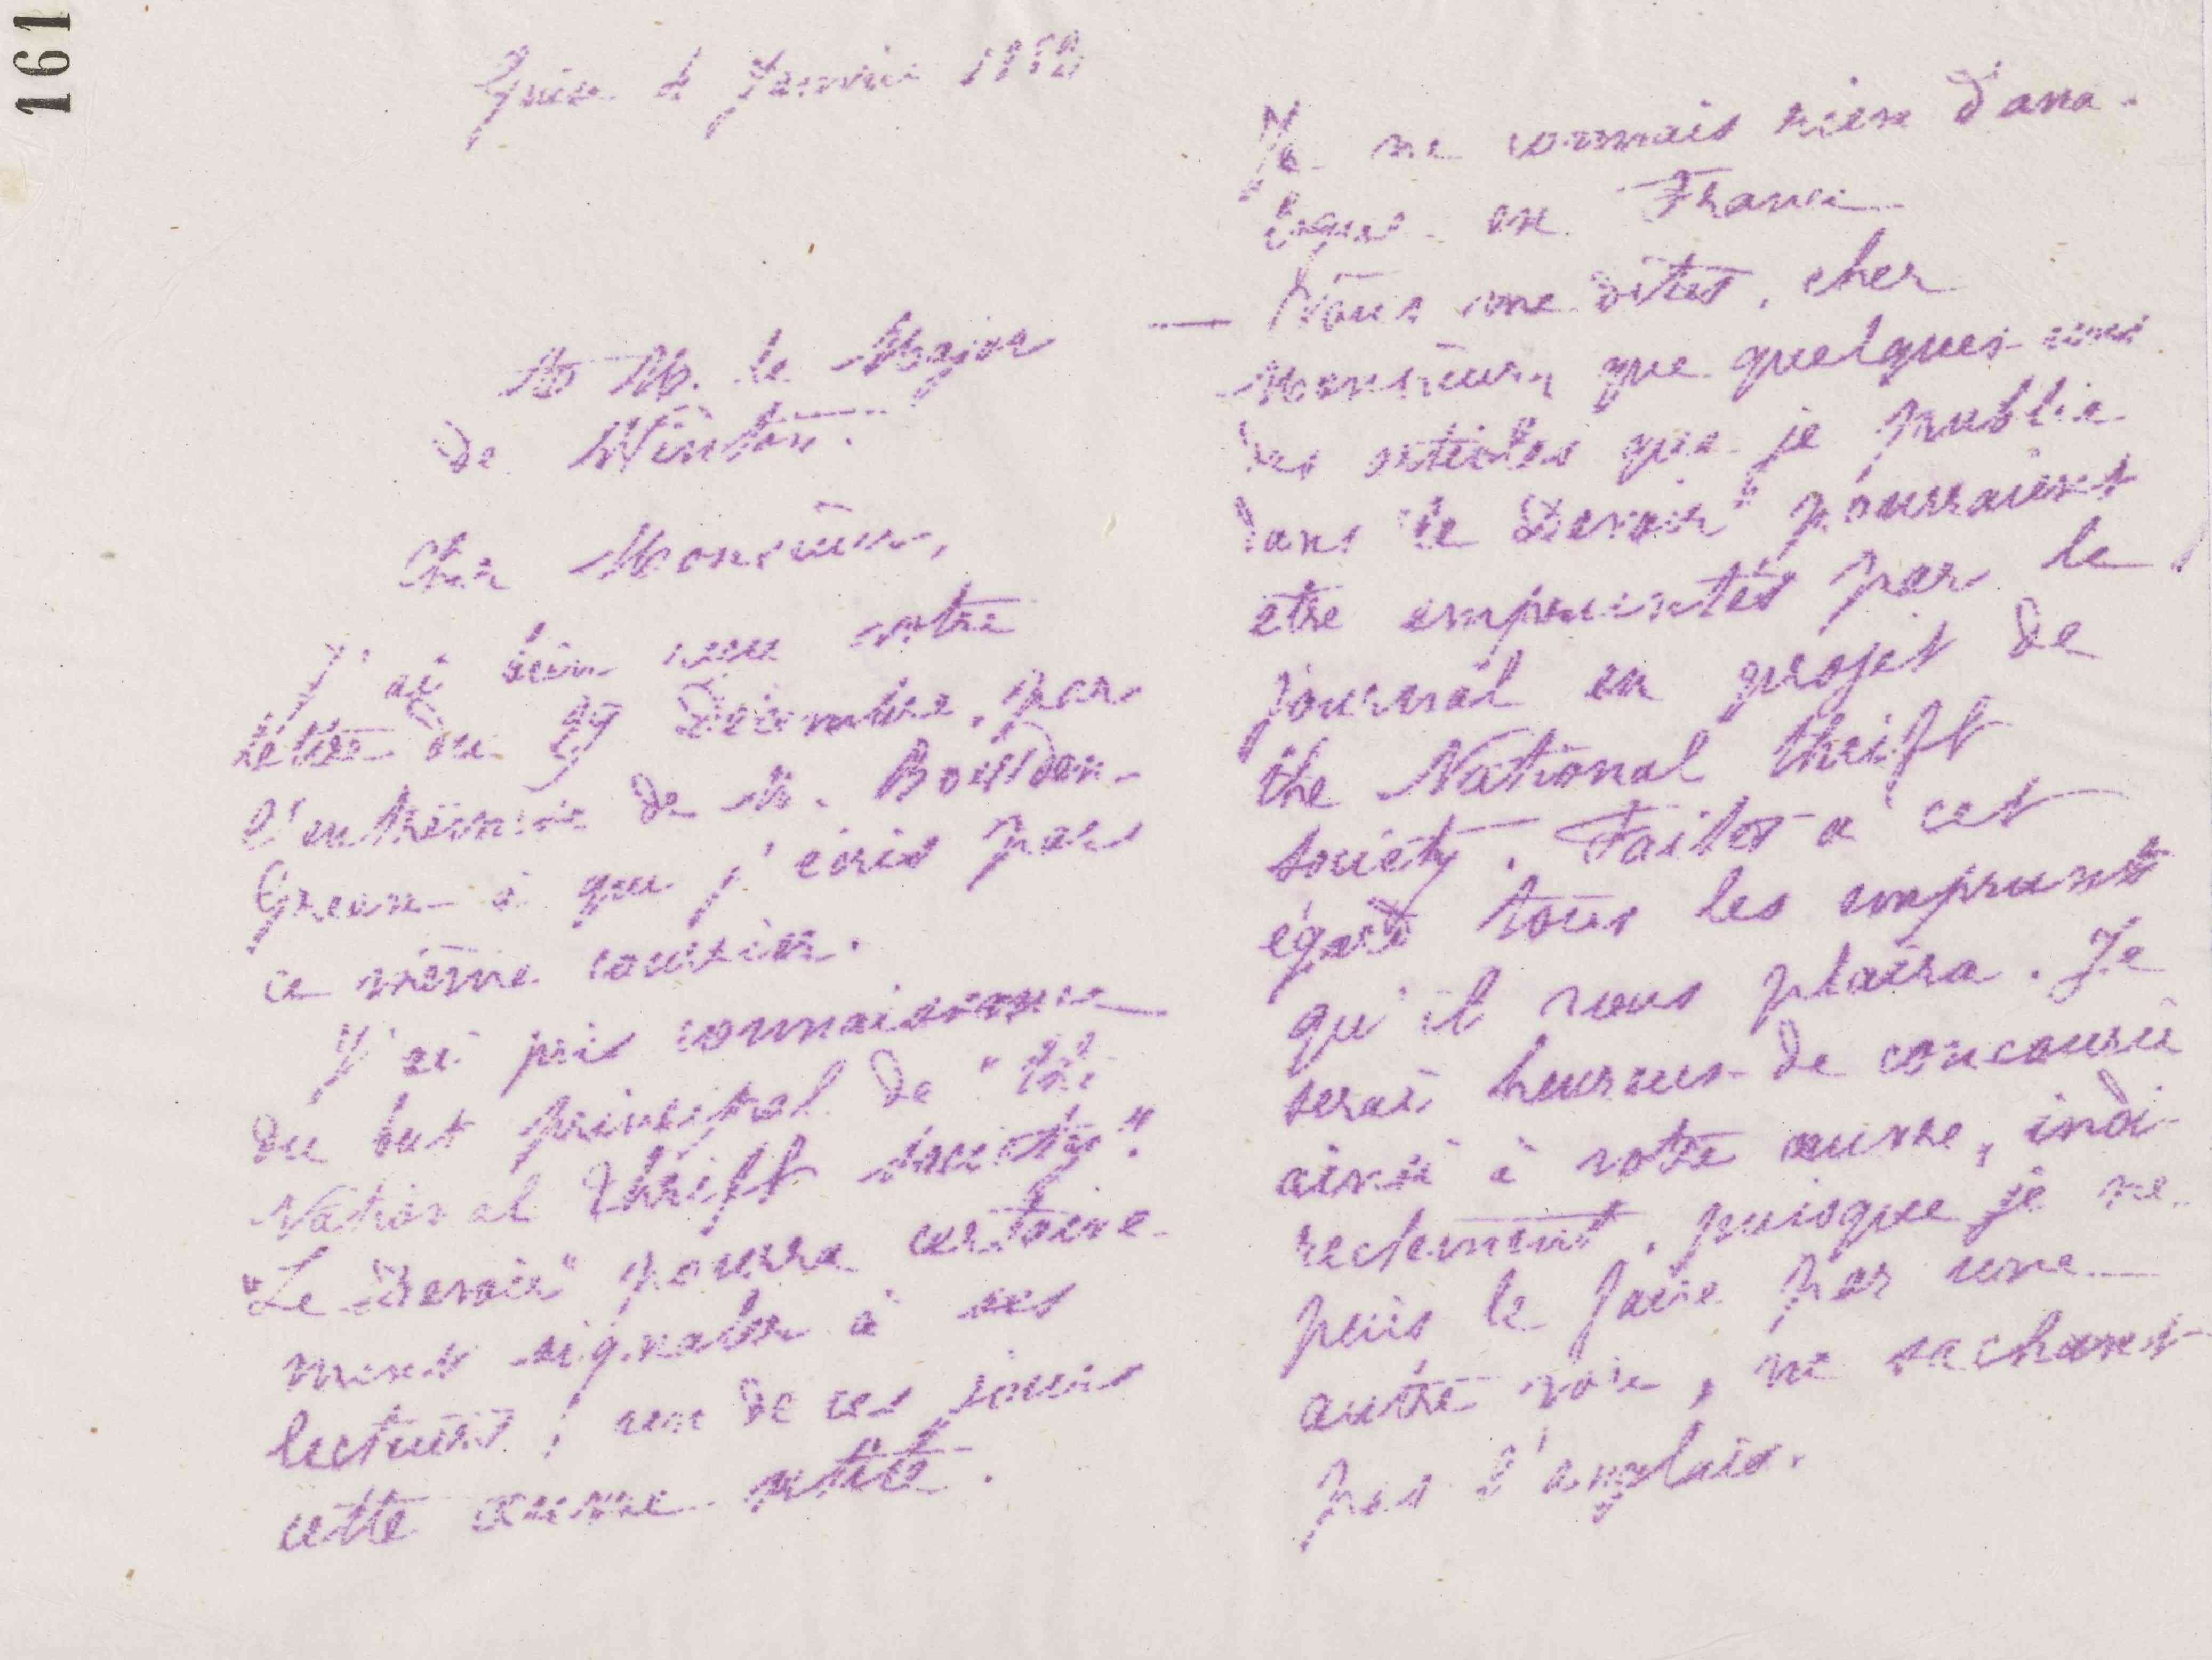 161
Guise 2 Janvier
A M. le Major
de Winton.
Cher Monsieur,
J'ai bien reçu votre
lettre du 29 Décembre, par
l'entremise de M.
à qui j'écris par
ce même courrier.
J'ai pris connaissance
du but principal de "the
National Thrift society".
"Le Devoir" pourra certaine-
ment signaler à ses
lecteurs, un de ces jours
cette œuvre utile.
Je ne connais rien d'ana-
logue en France
— Vous me dites, cher
Monsieur, que quelques uns
des articles que je publie
dans "le Devoir" pourraient
etre empruntés par le
journal en projet de
the National thrift
society. Faites à cet
égard tous les emprunts
qu'il vous plaira. Je
serai heureux de concourir
ainsi à votre œuvre, indi-
rectement, puisque je ne
puis le faire par une
autre voie, ne sachant
pas l'anglais.